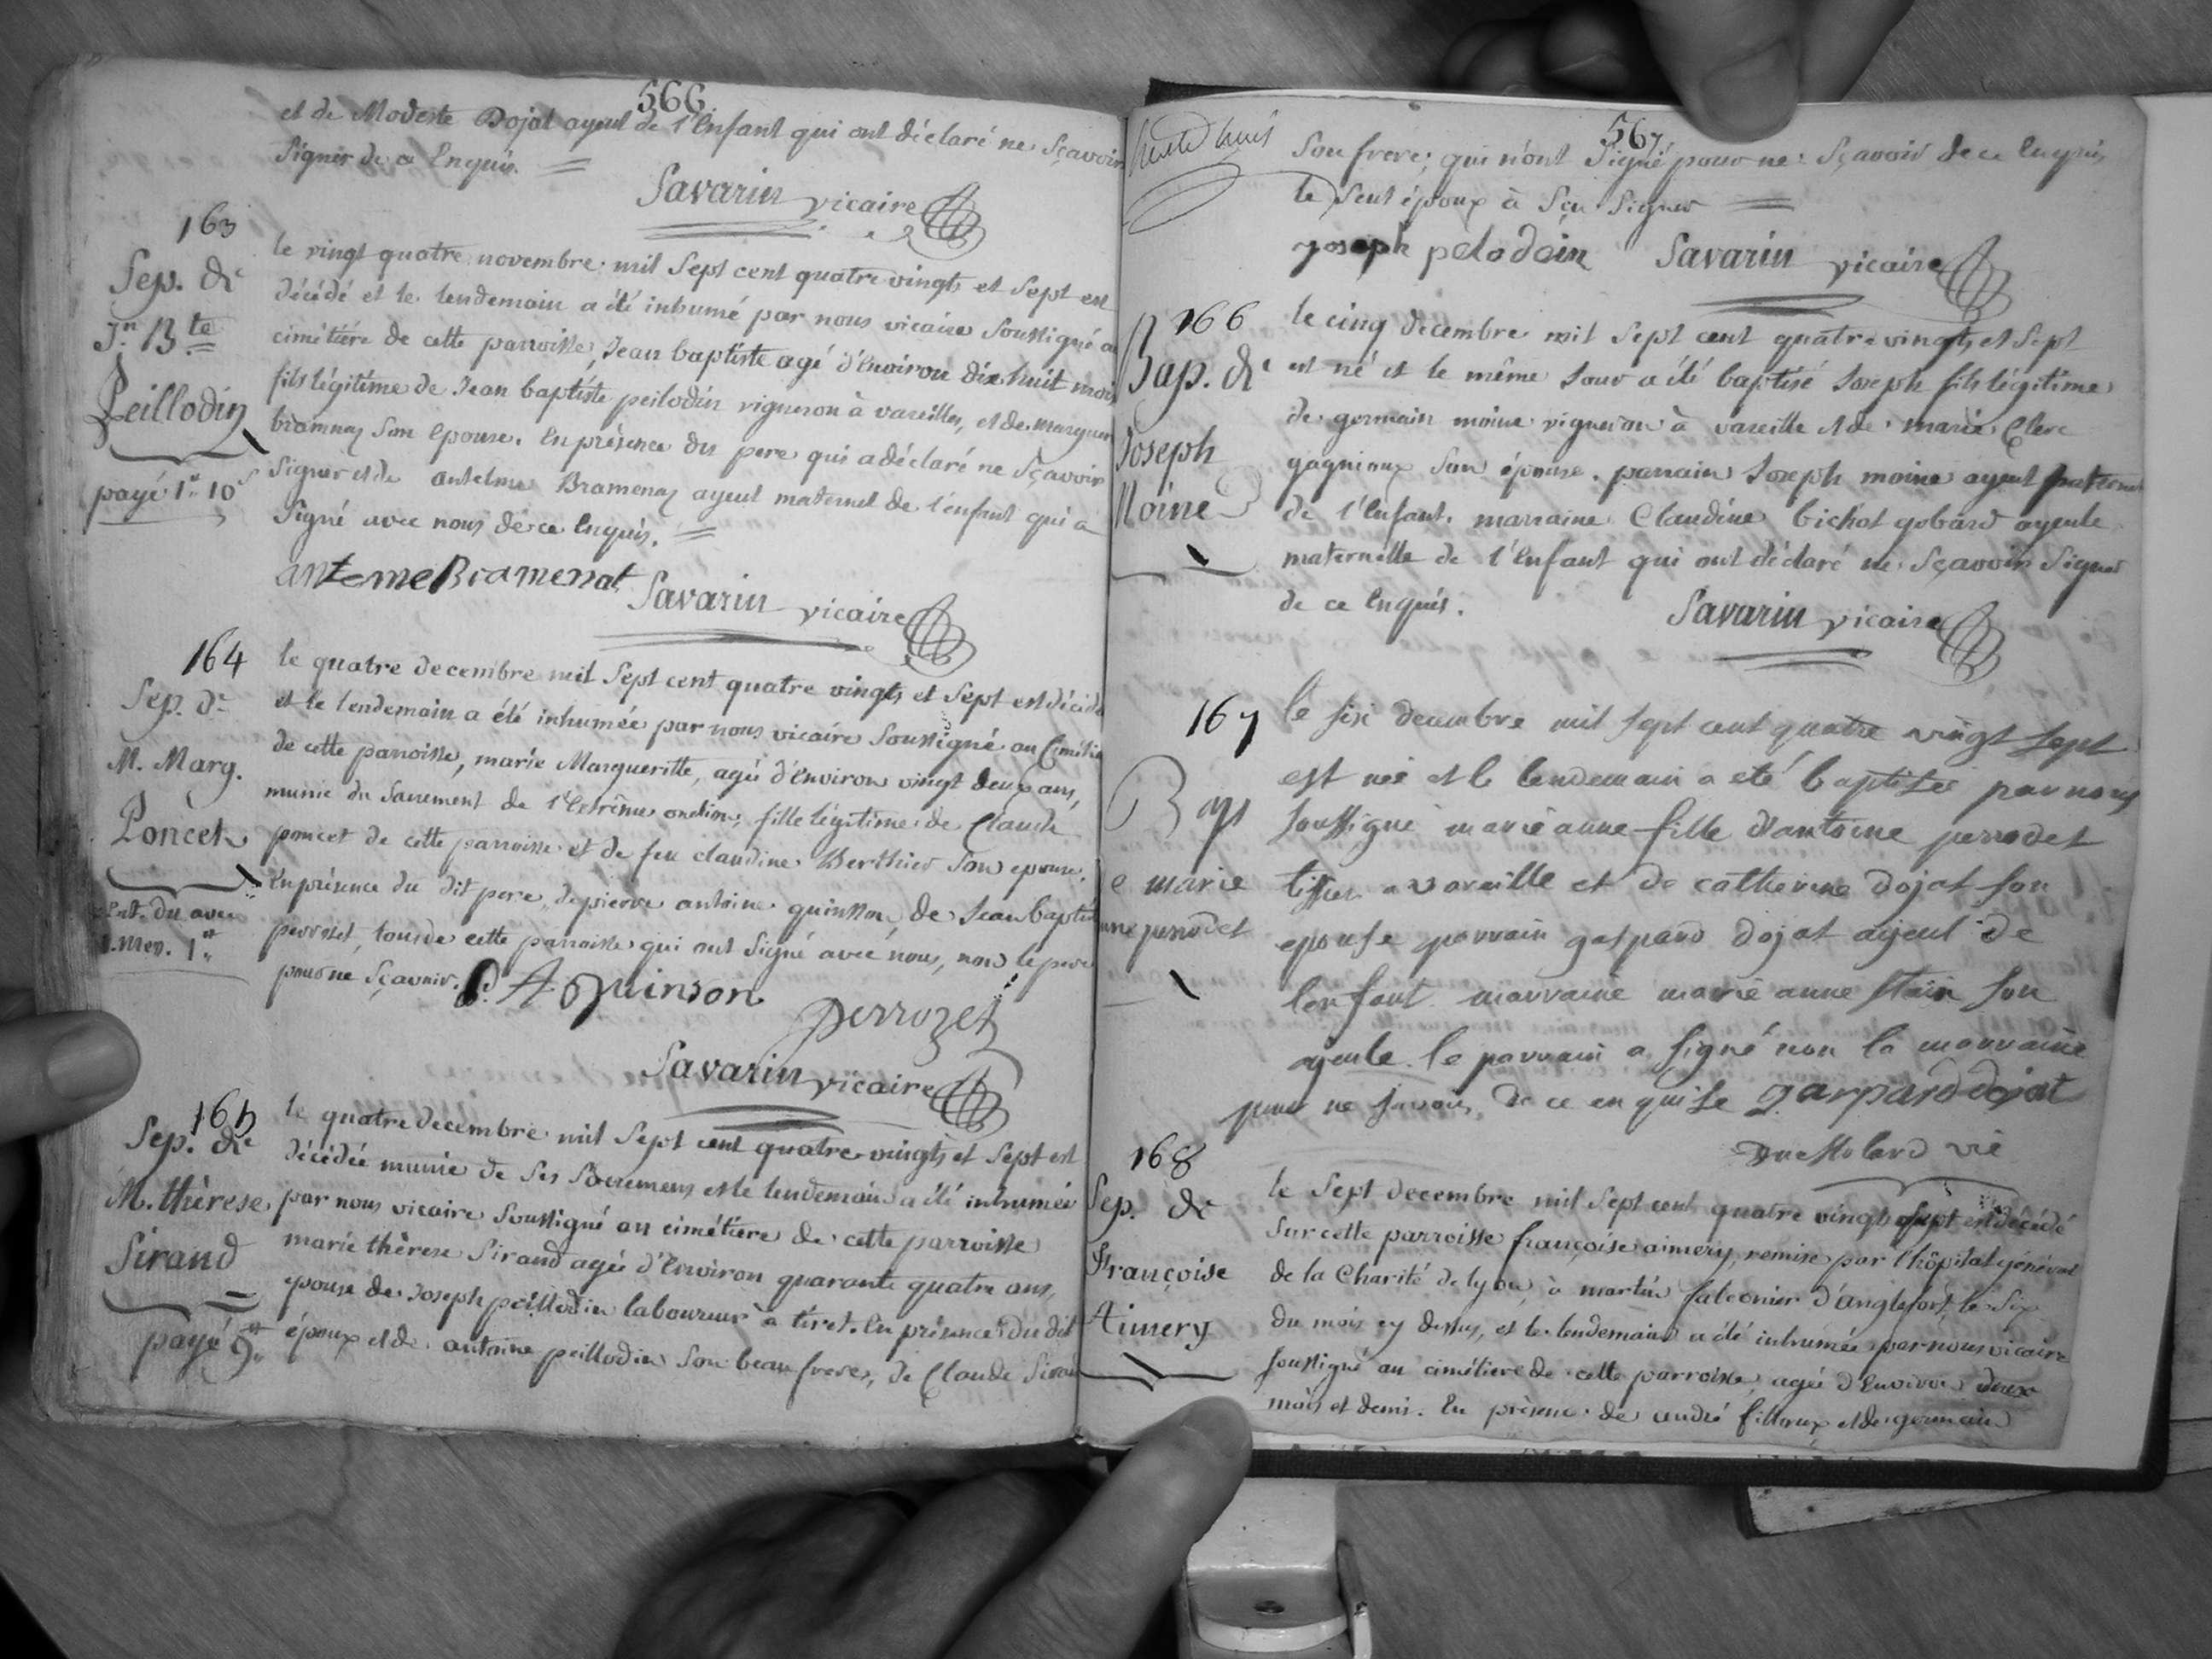 566
et de Modeste Dojat ayeul de l'Enfant qui ont déclaré ne sçavoir
signer de ce Enquis.
Savarin vicaire
163
Sep. de
Jn. Bte
Peillodin
payé 1" 10s
le vingt quatre novembre mil sept cent quatre vingts et sept est
décédé et le lendemain a été inhumé par nous vicaire soussigné au
cimétière de cette parroisse, Jean baptiste agé d'Environ dix huit mois
fils légitime de Jean baptiste peilodin vigneron à vareilles, et de marguer
bramnaz son Epouse. En présence du pere qui a déclaré ne sçavoir
signer et de antelme Bramenaz ayeul maternel de l'enfant qui a
signé avec nous de ce Enquis.
anteme Bramenat Savarin vicaire
164
Sep. de
M. Marg.
Poncet
le quatre decembre mil sept cent quatre vingts et sept est décédé
et le lendemain a été inhumée par nous vicaire soussigné au Cimétière
de cette parroisse, marie Margueritte, agée d'Environ vingt deux ans,
munie du sacrement de l'Extrême onction, fille légitime de Claude
poncet de cette parroisse et de feu claudine Berthier son epouse.
En présence du dit pere, de pierre antoine quinson, de Jean baptiste
perrozet, tous de cette parroisse qui ont signé avec nous, non le pere
pour ne sçavoir. P. A Quinson
perrozet
Savarin vicaire
165
Sep. de
M. thèrese
Sirand
payé 9"
le quatre decembre mil sept cent quatre vingts et sept est
décédée munie de ses sacremens et le lendemain a été inhumée
par nous vicaire soussigné au cimétiere de cette parroisse
marie thèrese Sirand agée d'Environ quarante quatre ans,
epouse de Joseph peillodin laboureur à tiret. En présence du dit
époux et de antoine peillodin son beau frere, de Claude Sirand
567
son frere; qui n'ont signé pour ne sçavoir de ce Enquis
le seul époux à sçu signer
joseph pelodoin Savarin vicaire
166
Bap. de
Joseph
Moine
le cinq decembre mil sept cent quatre vingts et sept
est né et le même Jour a été baptisé Joseph fils légitime
de germain moine vigneron à vareille et de marie Clerc
gagnioux son épouse. parrain Joseph moine ayeul paternel
de l'Enfant. marraine Claudine bichat gobard ayeule
maternelle de l'Enfant qui ont déclaré ne sçavoir signer
de ce Enquis.
Savarin vicaire
167
Bap
de marie
anne perrodet
le six decembre mil sept cent quatre vingt sept
est née et le lendemain a eté baptisée par nous
soussigné marie anne fille d'antoine perrodet
tissier a vareille et de catherine dojat son
epouse parrain gaspard dojat ayeul de
lenfant marraine marie anne stain son
ayeule le parrain a signé non la marraine
pour ne savoir de ce enquise gaspard dojat
vic
168
Sep. de
Françoise
Aimery
le sept decembre mil sept cent quatre vingts sept est décédé
sur cette parroisse françoise aimery, remise par l'hôpital général
de la Charité de lyon, à martin falconier d'anglefort, le six
du mois cy dessus, et le lendemain a été inhumée par nous vicaire
soussigné au cimétiere de cette parroisse, agée d'Environ deux
mois et demi. En présence de andré fillioux et de germain